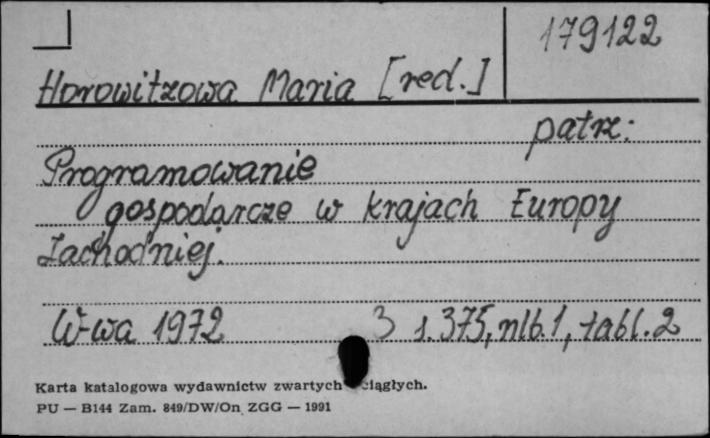 179122
Horowitzowa Maria [red.]
patrz:
Programowanie
gospodarcze w krajach Europy
Zachodniej.
W-wa 1972 3 s. 375, nlb. 1, tabl. 2
Karta katalogowa wydawnictw zwartych ciągłych.
PU — B144 Zam. 849/DW/On ZGG — 1991